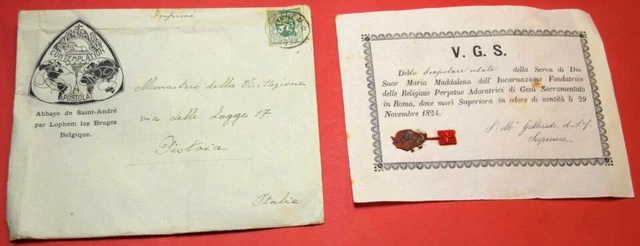 Imprimé
CONTEMPLATOR
APOSTOLA
Abbaye de Saint-André
par Lophem lez Bruges
Belgique.
Monastero della Visitazione
via delle Logge 17
Pistoia
Italia
V. G. S.
Dello Scapolare usato della Serva di Dio
Suor Maria Maddalena dell'Incarnazione Fondatrice
delle Religiose Perpetue Adoratrici di Gesù Sacramentato
in Roma, dove morì Superiora in odore di santità li 29
Novembre 1824.
S. Mª Geltrude d.
Superiora